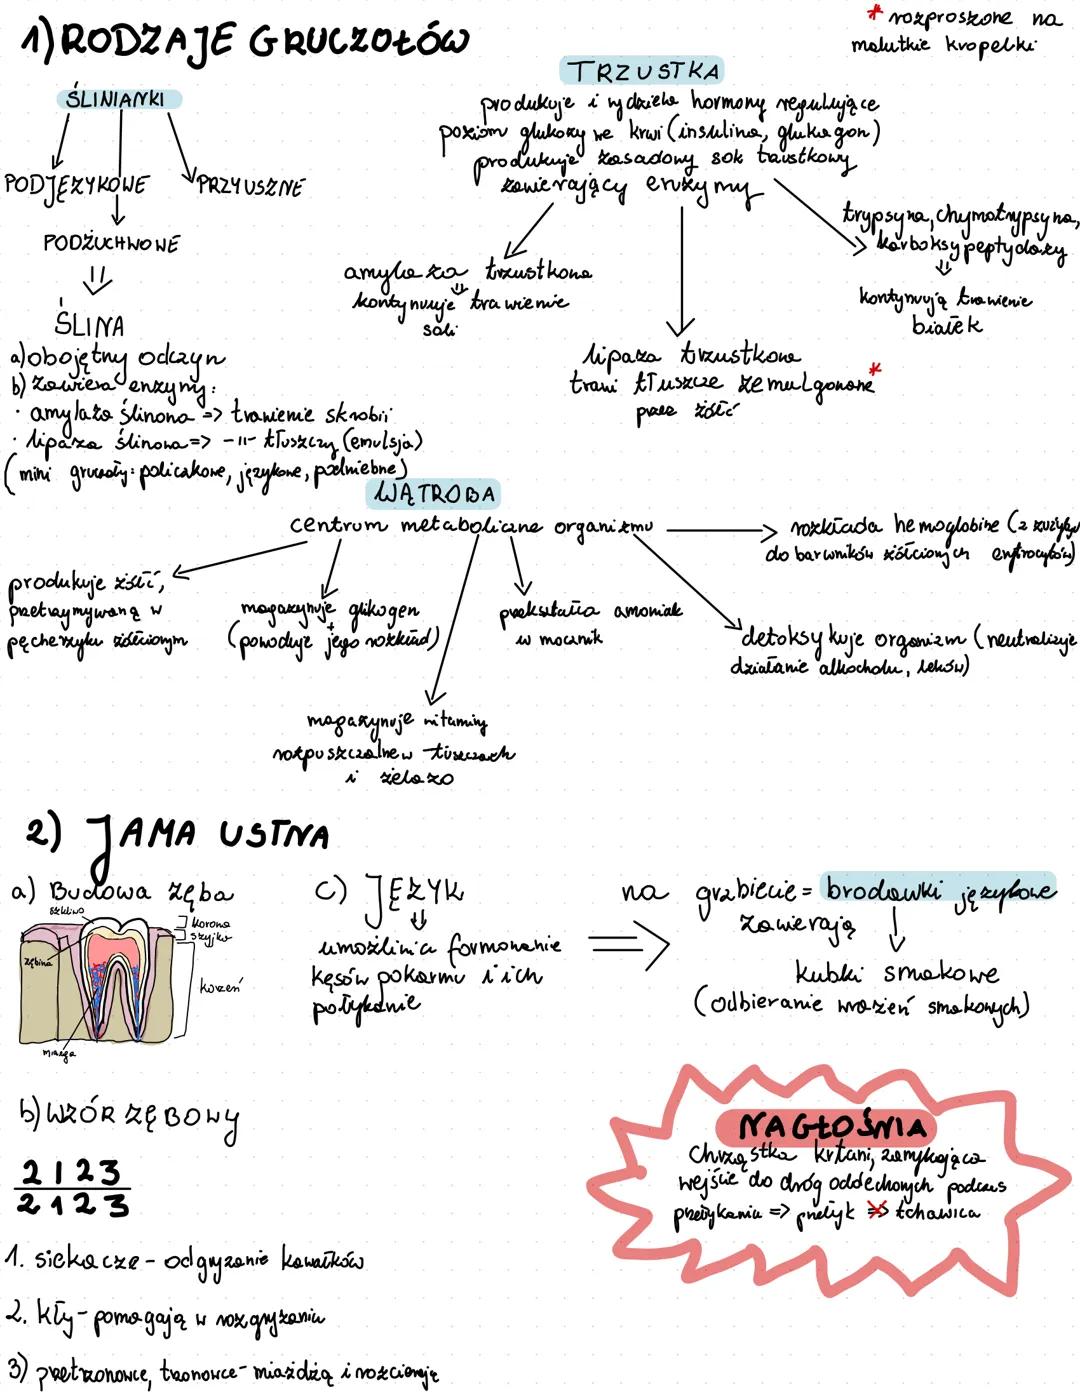 1) RODZAJE GRUCZOŁÓW
* rozproszone na
malutkie kropelki
ŚLINIANKI
PODJĘZYKOWE
PRZYUSZNE
PODŻUCHWOWE
ŚLINA
a) obojętny odczyn
b) zawiera enzymy:
· amylaza ślinowa => trawienie skrobii
· lipaza ślinowa => -11- tłuszczy (emulsja)
(mini gruczoły: policzkowe, językowe, podniebne)
TRZUSTKA
produkuje i wydziela hormony regulujące
poziom glukozy we krwi (insulina, glukagon)
produkuje zasadowy sok trzustkowy
zawierający enzymy
amylaza trzustkowa
kontynuuje trawienie
soli
lipaza trzustkowa
trawi tłuszcze zemulgowane*
przez żółć
trypsyna, chymotrypsyna,
karboksypeptydazy
kontynuują trawienie
białek
WĄTROBA
centrum metaboliczne organizmu
rozkłada hemoglobinę (z zużytych
do barwników żółciowych erytrocytów)
produkuje żółć,
przetrzymywaną w
pęcherzyku żółciowym
magazynuje glikogen
+
(powoduje jego rozkład)
przekształca amoniak
w mocznik
detoksykuje organizm (neutralizuje
działanie alkocholu, leków)
magazynuje witaminy
rozpuszczalne w tłuszczach
i żelazo
2) JAMA USTNA
a) Budowa zęba
szkliwo
korona
szyjka
zębina
korzeń
miazga
c) JĘZYK
umożliwia formowanie
kęsów pokarmu i ich
połykanie
na grzbiecie = brodawki językowe
zawierają
kubki smakowe
(odbieranie wrażeń smakowych)
b) WZÓR ZĘBOWY
2 1 2 3
2 1 2 3
1. siekacze - odgryzanie kawałków
2. kły - pomagają w rozgryzaniu
3) przedtrzonowce, trzonowce - miażdżą i rozcierają
NAGŁOŚNIA
Chrząstka krtani, zamykająca
wejście do dróg oddechowych podczas
przełykania => przełyk => tchawica